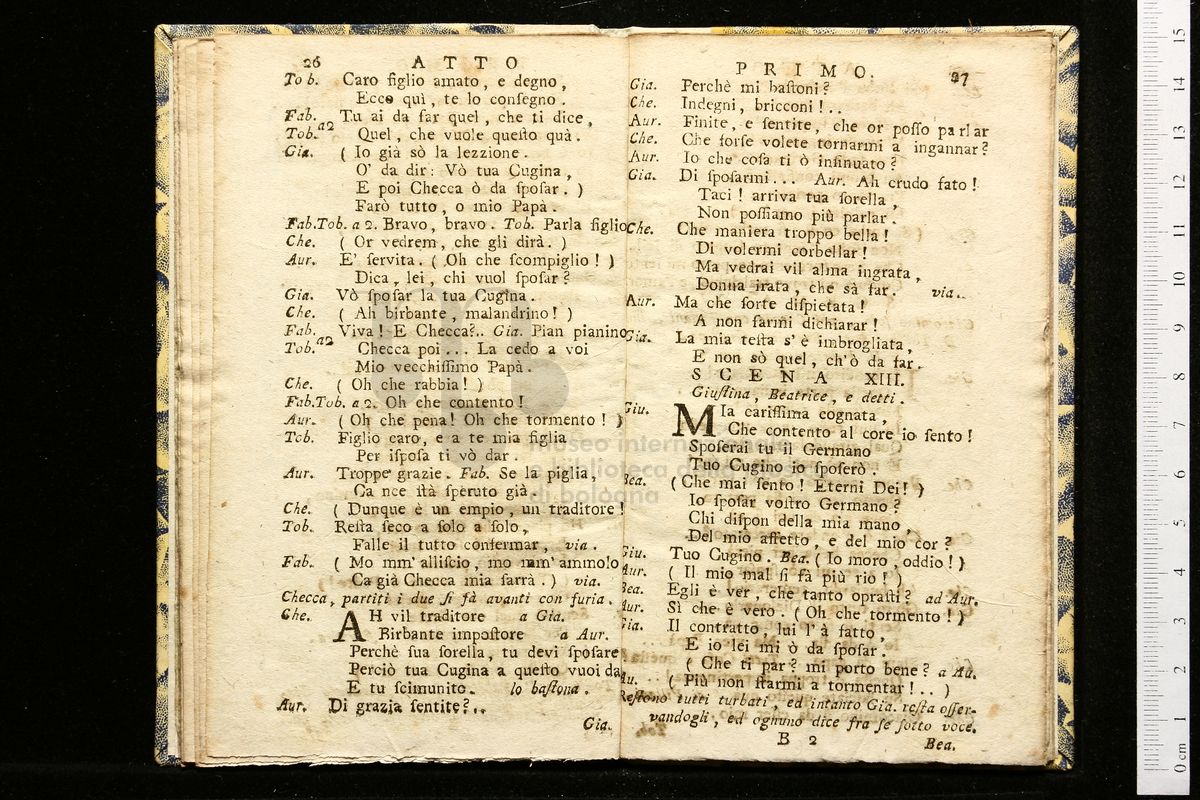 26 ATTO
Tob. Caro figlio amato, e degno,
Ecco quì, te lo consegno.
Fab. Tu ai da far quel, che ti dice,
Tob. a2 Quel, che vuole questo quà.
Gia. ( Io già sò la lezzione.
O' da dir: vò tua Cugina,
E poi Checca ò da sposar. )
Farò tutto, o mio Papà.
Fab.Tob. a 2. Bravo, bravo. Tob. Parla figlio
Che. ( Or vedrem, che gli dirà. )
Aur. E' servita. ( Oh che scompiglio! )
Dica, lei, chi vuol sposar?
Gia. Vò sposar la tua Cugina.
Che. ( Ah birbante, malandrino! )
Fab. Viva! E Checca?.. Gia. Pian pianino
Tob. a2 Checca poi... La cedo a voi
Mio vecchissimo Papà.
Che. ( Oh che rabbia! )
Fab.Tob. a 2. Oh che contento!
Aur. ( Oh che pena! Oh che tormento! )
Tob. Figlio caro, e a te mia figlia
Per isposa ti vò dar.
Aur. Troppe grazie. Fab. Se la piglia,
Ca nce stà speruto già.
Che. ( Dunque è un empio, un traditore!
Tob. Resta seco a solo a solo,
Falle il tutto confermar, via.
Fab. ( Mo mm'alliscio, mo mm'ammolo
Ca già Checca mia sarrà. ) via.
Checca, partiti i due si fà avanti con furia.
Che. AH vil traditore a Gia.
Birbante impostore a Aur.
Perchè sua sorella, tu devi sposare
Perciò tua Cugina a questo vuoi da
E tu scimunito. lo bastona.
Aur. Di grazia sentite?..
Gia.
PRIMO. 27
Gia. Perchè mi bastoni?
Che. Indegni, bricconi!..
Aur. Finite, e sentite, che or posso parlar
Che. Che forse volete tornarmi a ingannar?
Aur. Io che cosa ti ò insinuato?
Gia. Di sposarmi... Aur. Ah crudo fato!
Taci! arriva tua sorella,
Non possiamo più parlar.
Che. Che maniera troppo bella!
Di volermi corbellar!
Ma vedrai vil alma ingrata,
Donna irata, che sà far. via.
Aur. Ma che sorte dispietata!
A non farmi dichiarar!
Gia. La mia testa s'è imbrogliata,
E non sò quel, ch'ò da far.
SCENA XIII.
Giustina, Beatrice, e detti.
Giu. MIa carissima cognata,
Che contento al core io sento!
Sposerai tu il Germano
Tuo Cugino io sposerò.
Bea. ( Che mai sento! Eterni Dei! )
Io sposar vostro Germano?
Chi dispon della mia mano,
Del mio affetto, e del mio cor?
Giu. Tuo Cugino. Bea. ( Io moro, oddio! )
Aur. ( Il mio mal si fà più rio! )
Bea. Egli è ver, che tanto oprasti? ad Aur.
Aur. Sì che è vero. ( Oh che tormento! )
Gia. Il contratto, lui l'à fatto,
E io lei mi ò da sposar.
( Che ti par? mi porto bene? a Au.
Au. ( Più non starmi a tormentar!.. )
Restono tutti turbati, ed intanto Gia. resta osser-
vandogli, ed ognuno dice fra se sotto voce.
B 2 Bea.
museo internazionale
e biblioteca della musica
di bologna
0 cm 1 2 3 4 5 6 7 8 9 10 11 12 13 14 15